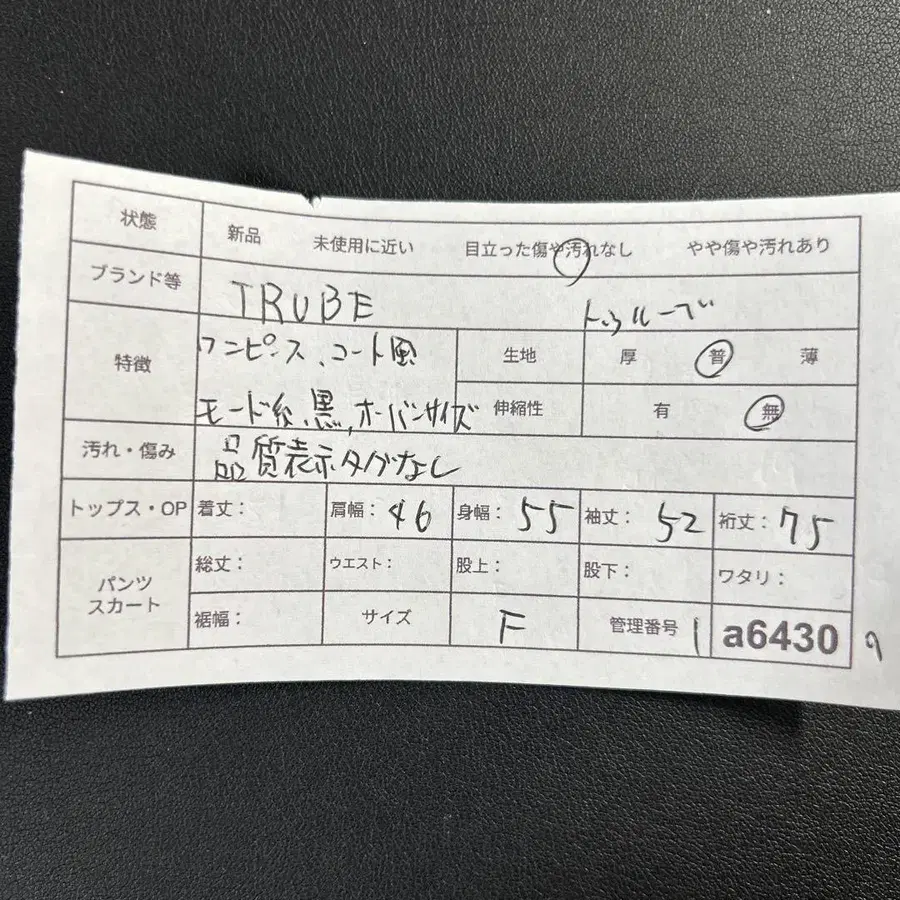 状態 新品 未使用に近い 目立った傷や汚れなし やや傷や汚れあり
ブランド等 TRUBE トゥルーブ
特徴 ワンピース、コート風 生地 厚 普 薄
モード系、黒、オーバーサイズ 伸縮性 有 無
汚れ・傷み 品質表示タグなし
トップス・OP 着丈： 肩幅：46 身幅：55 袖丈：52 裄丈：75
パンツ スカート 総丈： ウエスト： 股上： 股下： ワタリ：
裾幅： サイズ F 管理番号 1 a6430 9